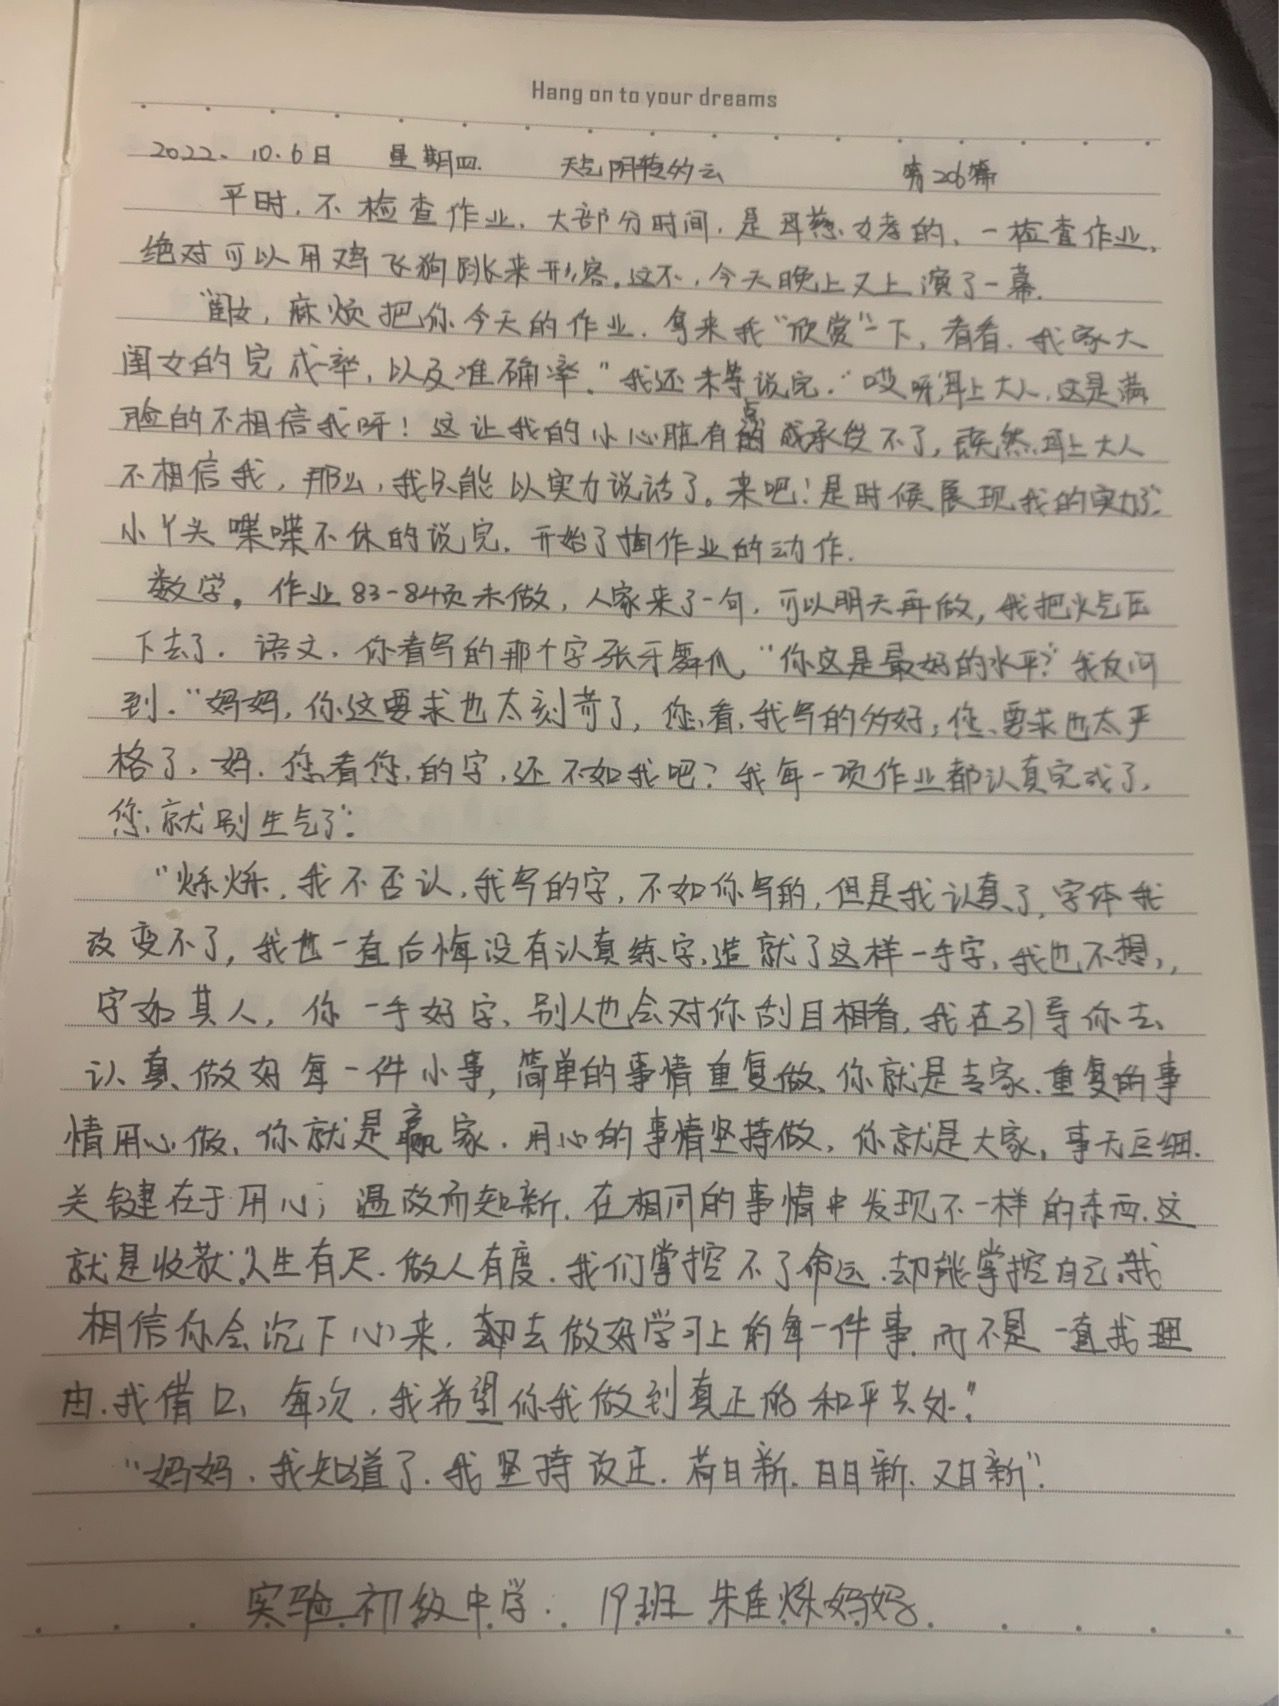 Hang on to your dreams
2022.10.6日 星期四. 天气阴转多云 第206篇
平时,不检查作业,大部分时间,是母慈女孝的,一检查作业,
绝对可以用鸡飞狗跳来形容。这不,今天晚上又上演了一幕.
"闺女,麻烦把你今天的作业,拿来我"欣赏"一下,看看,我家大
闺女的完成率,以及准确率。"我还未等说完,"哎呀,母上大人,这是满
脸的不相信我呀!这让我的小心脏有点承受不了,既然母上大人
不相信我,那么,我只能以实力说话了。来吧!是时候展现我的实力了."
小丫头喋喋不休的说完,开始了掏作业的动作.
数学。作业83-84页未做,人家来了一句,可以明天再做,我把火气压
下去了.语文.你看写的那个字张牙舞爪,"你这是最好的水平?"我反问
到."妈妈,你这要求也太刻苛了,您看,我写的多好,您要求也太严
格了,妈.您看您的字,还不如我吧?我每一项作业都认真完成了,
您就别生气了".
"烁烁,我不否认,我写的字,不如你写的,但是我认真了,字体我
改变不了,我也一直后悔没有认真练字,造就了这样一手字,我也不想,,
字如其人,你一手好字、别人也会对你刮目相看,我在引导你去
认真做好每一件小事,简单的事情重复做、你就是专家、重复的事
情用心做,你就是赢家.用心的事情坚持做,你就是大家,事无巨细.
关键在于用心;温故而知新.在相同的事情中发现不一样的东西.这
就是收获.人生有尺.做人有度.我们掌控不了命运.却能掌控自己.我
相信你会沉下心来,去做好学习上的每一件事.而不是一直找理
由.找借口,每次,我希望你我做到真正的和平共处."
"妈妈,我知道了.我坚持改正.苟日新.日日新.又日新".
实验初级中学. 19班 朱佳烁妈妈